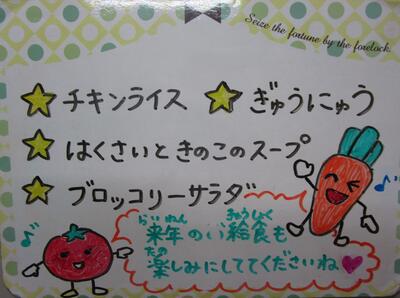 Seize the fortune by the forelock.
チキンライス ぎゅうにゅう
はくさいときのこのスープ
ブロッコリーサラダ
らいねん きゅうしょく
来年のい給食も
たの
楽しみにしててくださいね